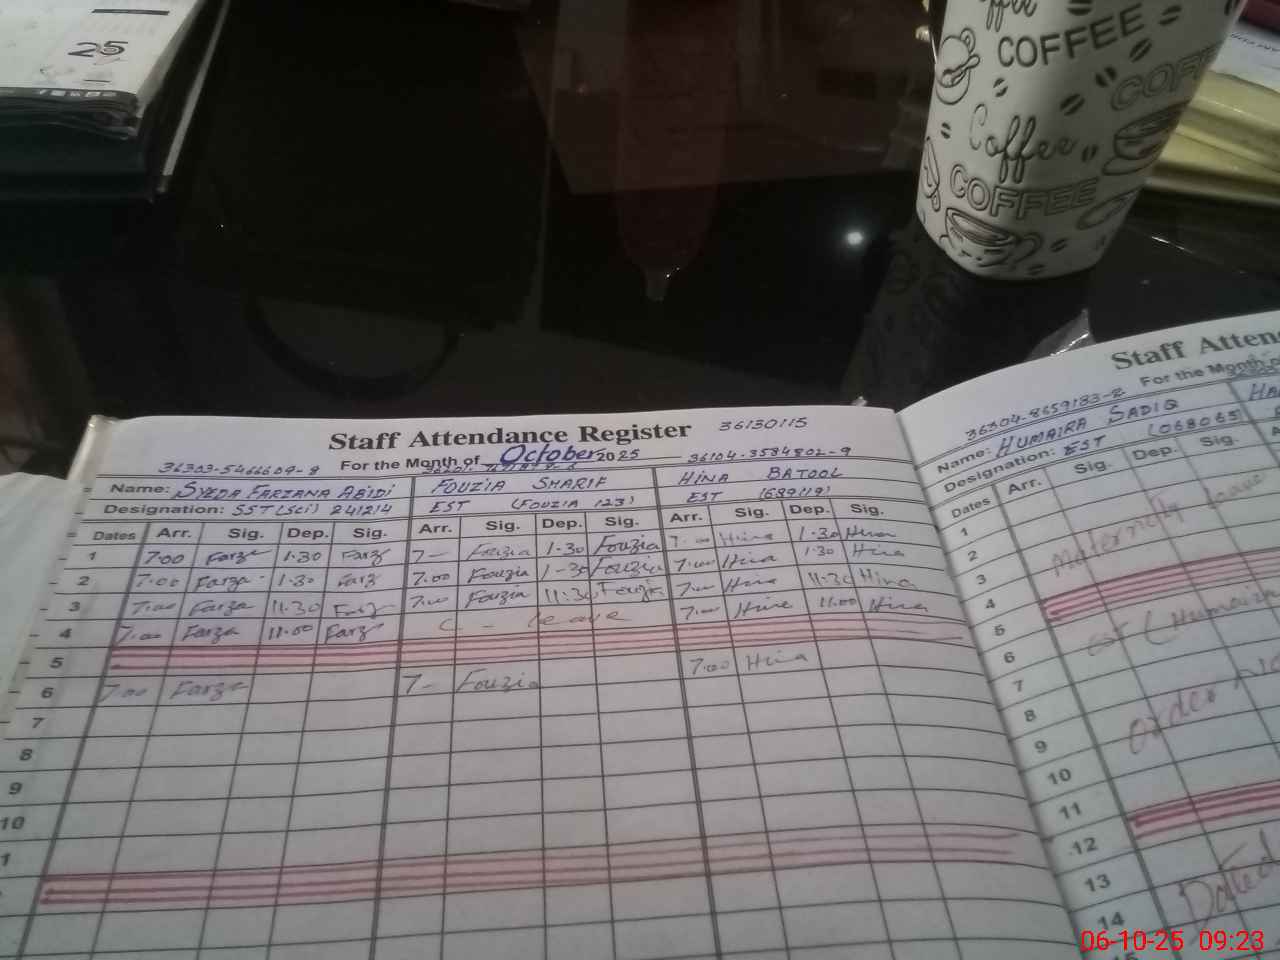 25
COFFEE
Coffee
COFFEE
Staff Attendance Register
36130115
For the Month of October 2025
36303-5466609-8
36104-3584802-9
Name: SYEDA FARZANA ABIDI
FOUZIA SHARIF
HINA BATOOL
Designation: SST (Sci) 241214
EST (FOUZIA 123)
EST (689119)
Dates Arr. Sig. Dep. Sig. Arr. Sig. Dep. Sig. Arr. Sig. Dep. Sig.
1 7.00 Farza 1.30 Farz 7- Fouzia 1.30 Fouzia 7.00 Hina 1.30 Hina
2 7.00 Farza 1.30 Farz 7.00 Fouzia 1-30 Fouzia 7.00 Hina 1.30 Hina
3 7.00 Farza 11.30 Farz 7.00 Fouzia 11.30 Fouzia 7.00 Hina 11.30 Hina
4 7.00 Farza 11.00 Farz C - leave 7.00 Hina 11.00 Hina
5
6 7.00 Farza 7- Fouzia 7.00 Hina
7
8
9
10
Staff Atten
For the Month of
36304-8659183-2
Name: HUMAIRA SADIQ
Designation: EST (068065)
Dates Arr. Sig. Dep. Sig.
1
2 Maternity leave
3
4
5
6 EST (Humaira
7
8
9 Order No
10
11
12
13
14 Dated
15
06-10-25 09:23